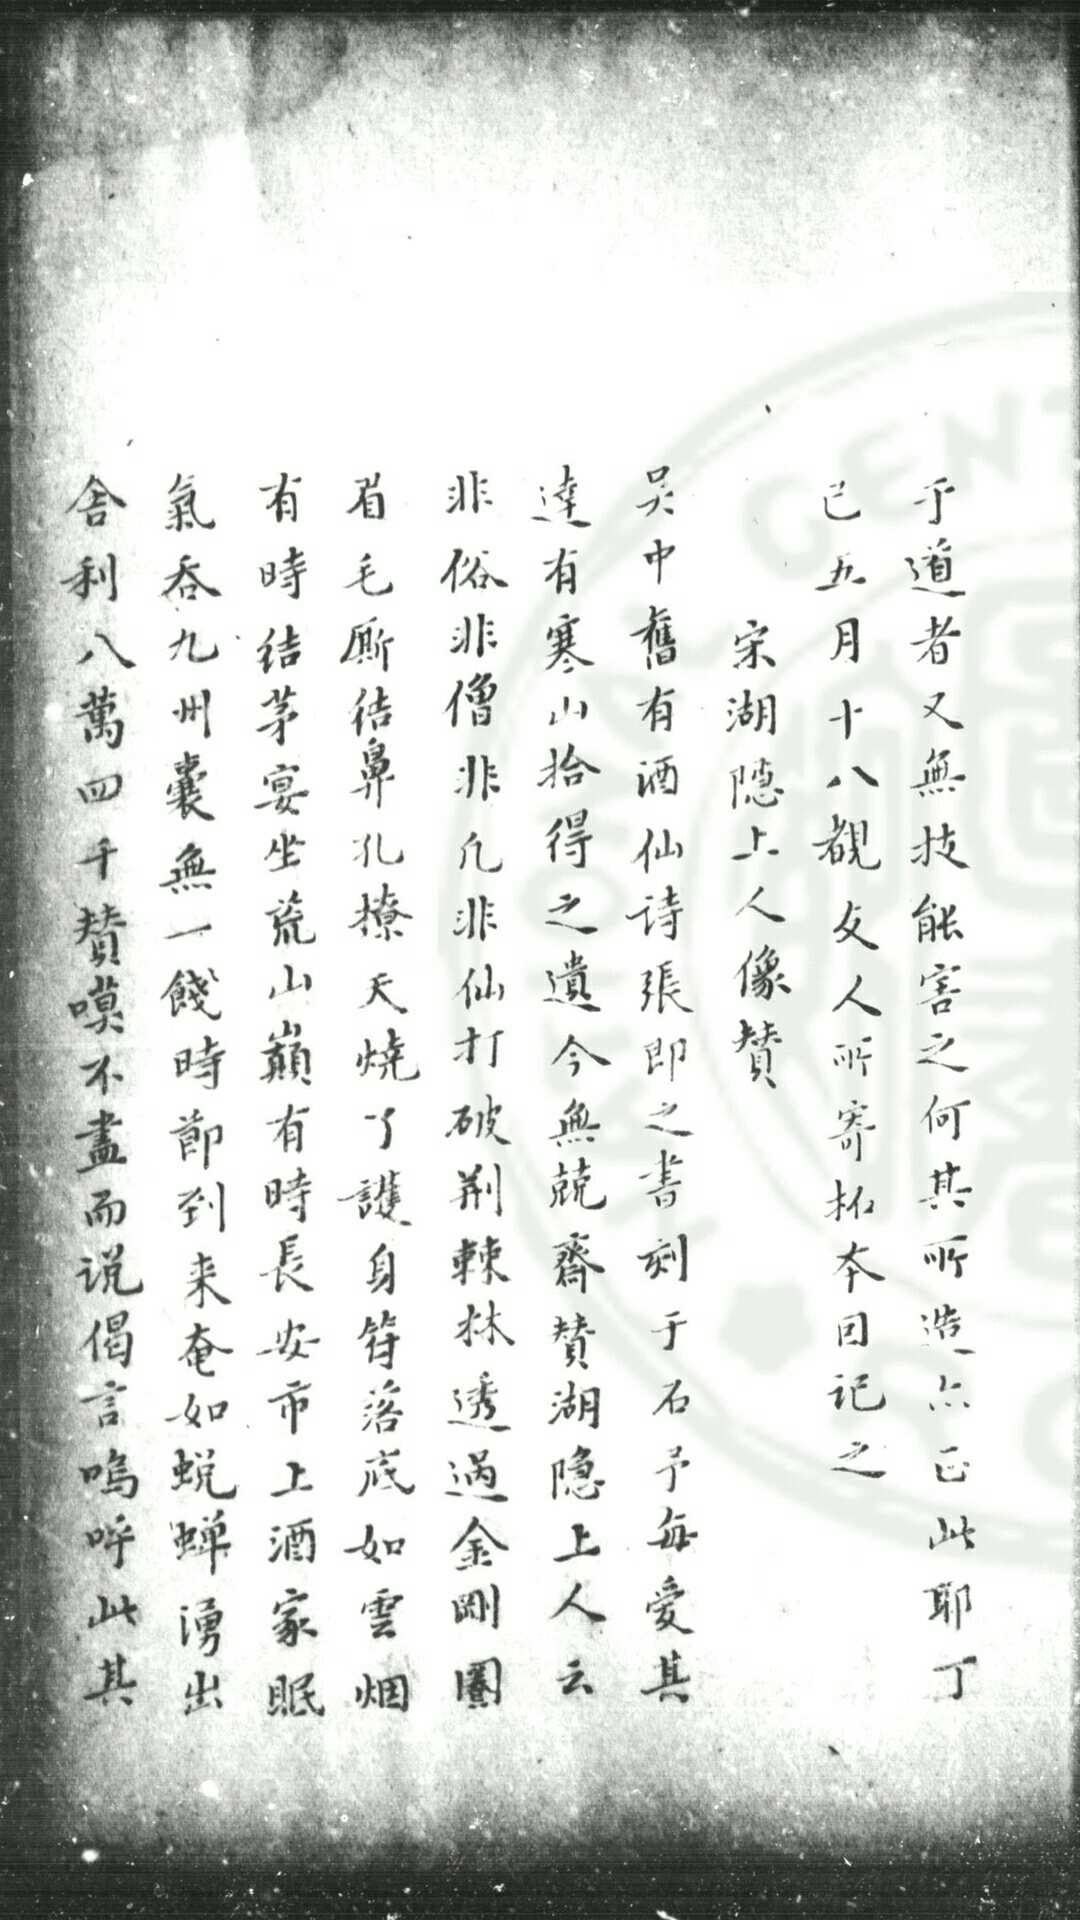 于道者又無技能害之何其所造亦正此耶丁
巳五月十八觀友人所寄拓本因記之
宋湖隱上人像贊
吳中舊有酒仙诗張即之書刻于石予每愛其
達有寒山拾得之遺今無兢齋贊湖隐上人云
非俗非僧非凡非仙打破荆棘林透過金剛圈
眉毛厮结鼻孔撩天燒了護身符落底如雲烟
有時结茅宴坐荒山巔有時長安市上酒家眠
氣吞九州囊無一餞時節到来奄如蜕蟬湧出
舍利八萬四千贊嘆不盡而说偈言嗚呼此其